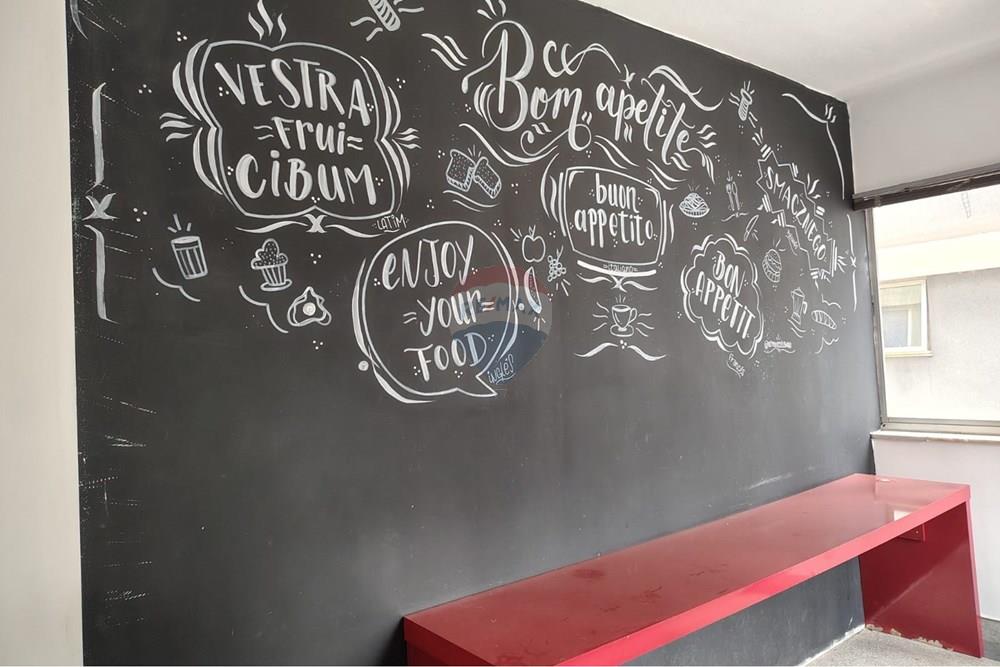 VESTRA
FRui
CiBUM
LATiM
Bom apetite
enJOY
YOUR
FOOD
iNGLeS
buon
appetito.
italiano
BON
APPETIT
francês
SMACZNEGO
RE/MAX